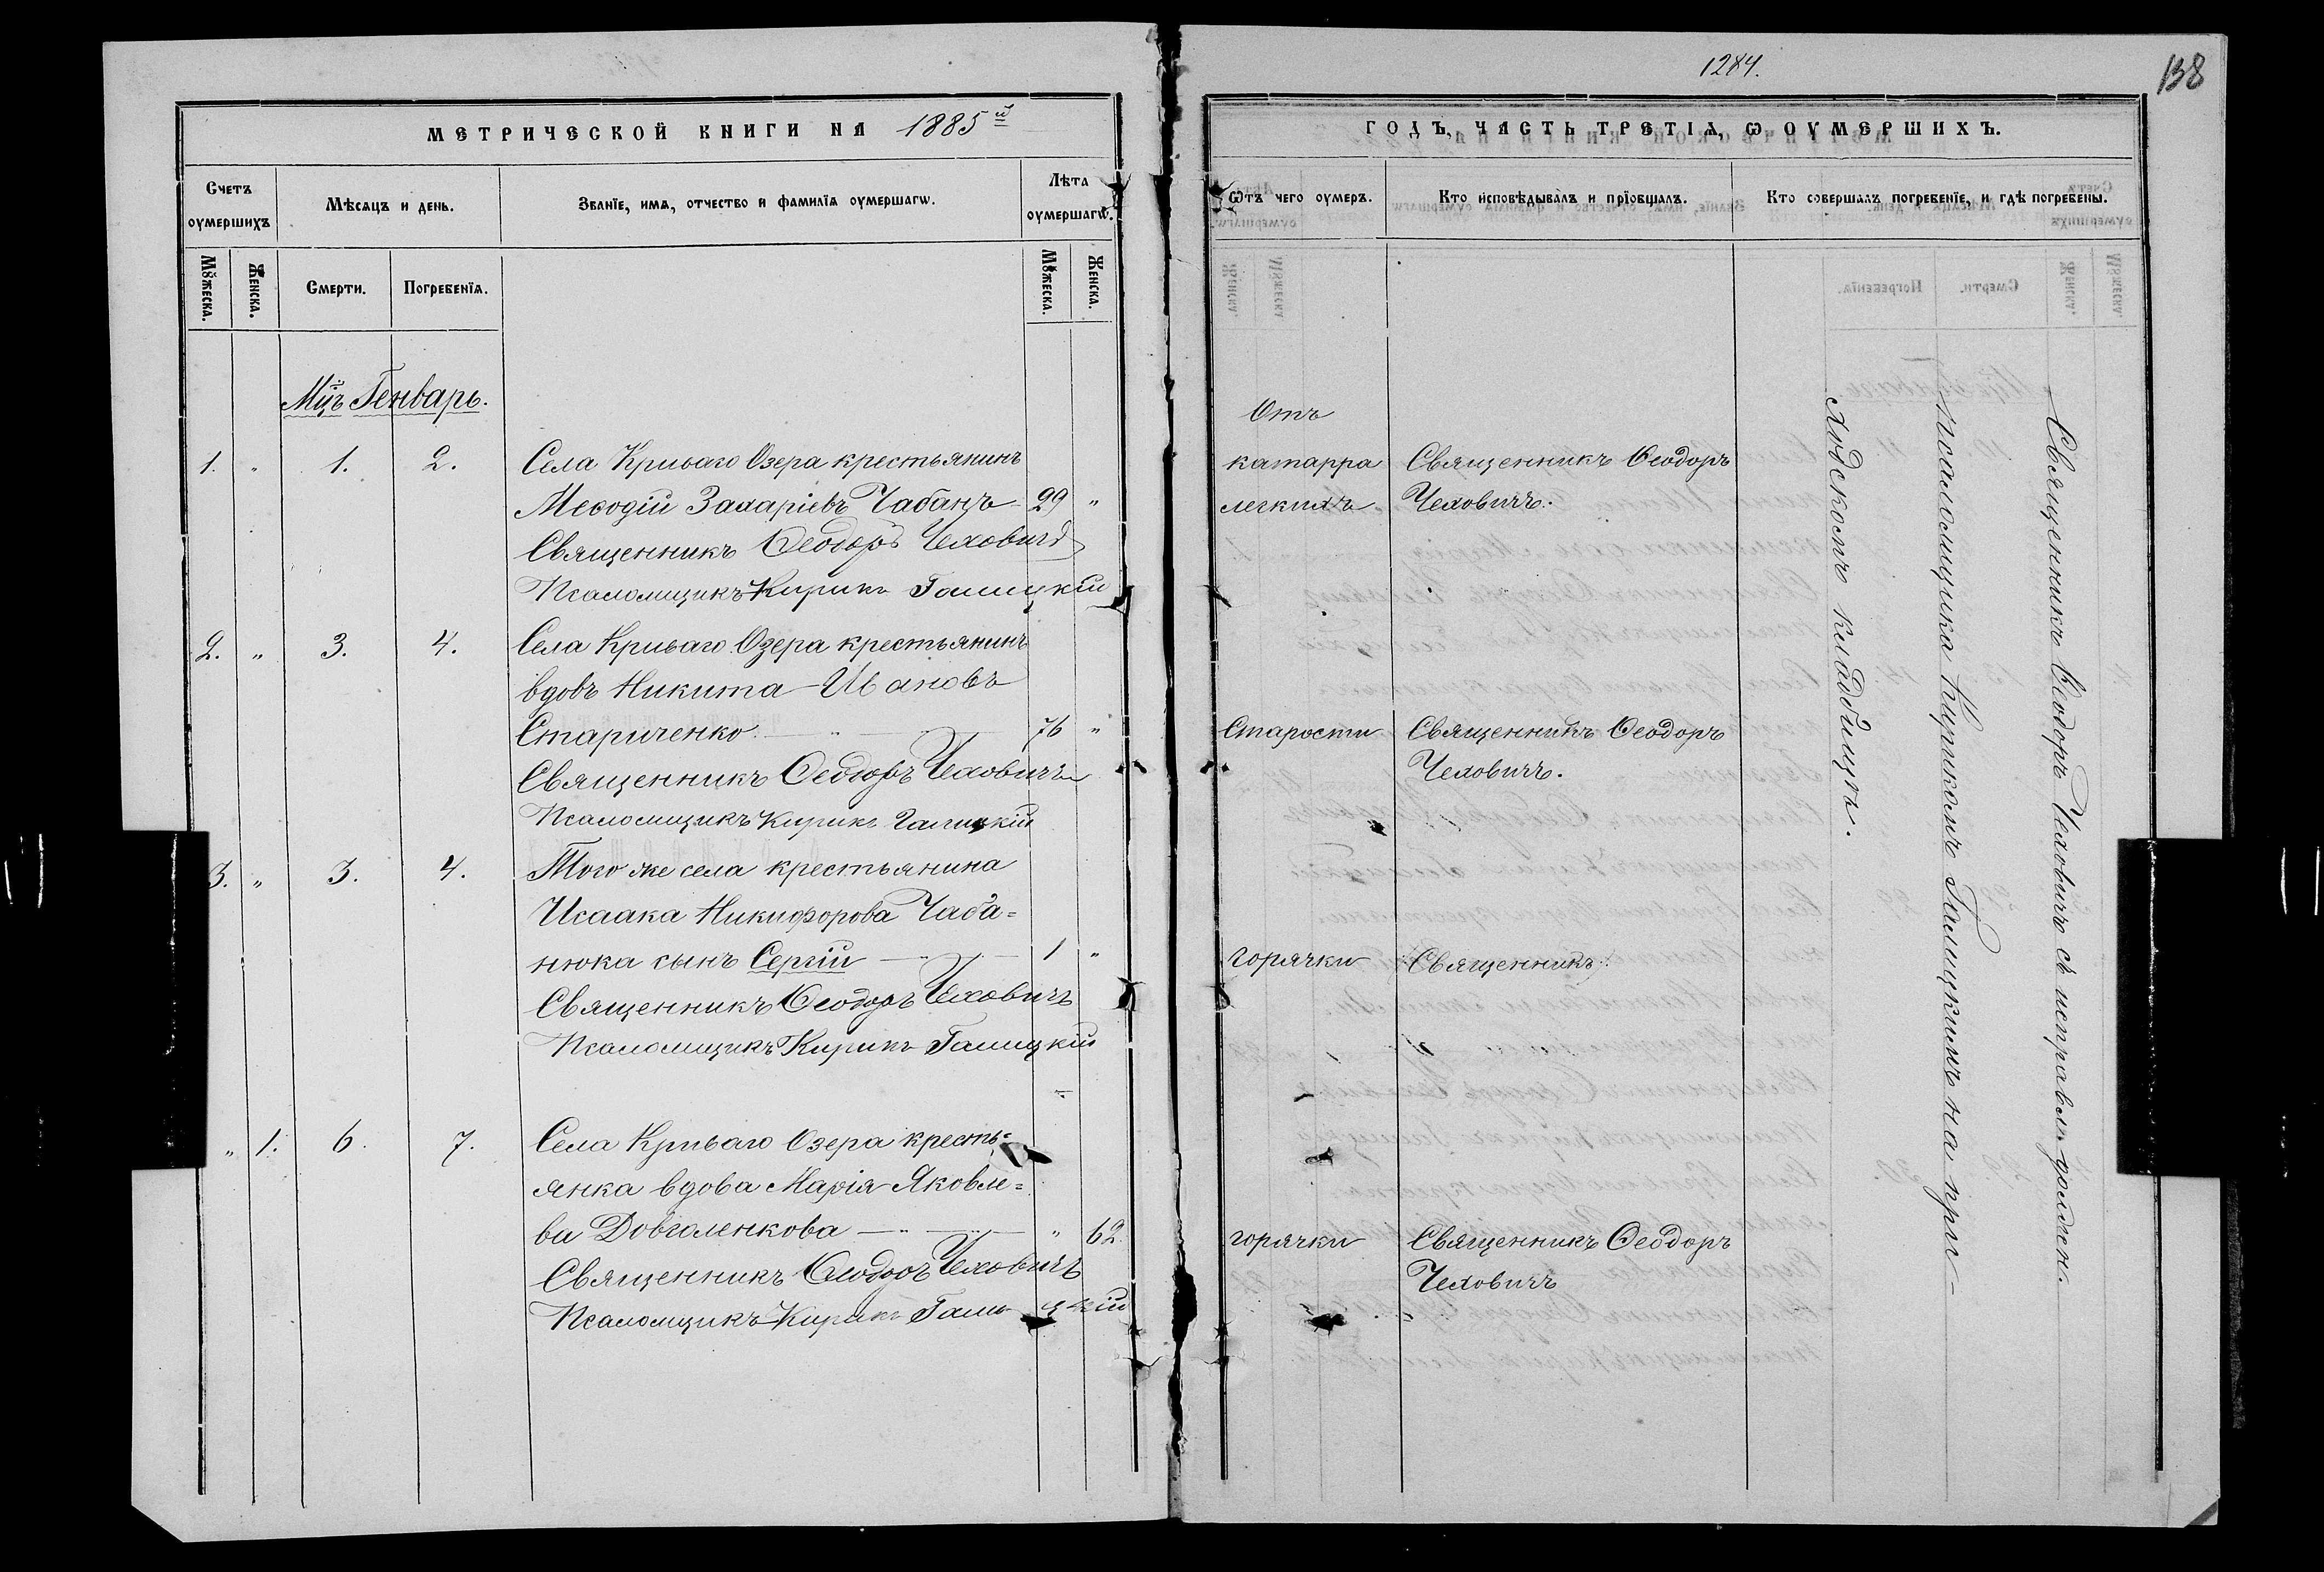 МЕТРИЧЕСКОЙ КНИГИ НА 1885й
Счетъ оумершихъ
Мѣсяцъ и день.
Званїе, имя, отчество и фамилїя оумершагѡ.
Лѣта оумершагѡ.
Мꙋжеска.
Женска.
Смерти.
Погребенїя.
Мꙋжеска.
Женска.
Мцъ Генварь.
1. „ 1. 2. Села Криваго Озера крестьянинъ
Меѳодій Захаріевъ Чабанъ 29 „
Священникъ Ѳеодоръ Чеховичъ
Псаломщикъ Кирикъ Галицкій
2. „ 3. 4. Села Криваго Озера крестьянинъ
вдовъ Никита Ивановъ
Стариченко 76 „
Священникъ Ѳеодоръ Чеховичъ
Псаломщикъ Кирикъ Галицкій
3. „ 3. 4. Того же села крестьянина
Исаака Никифорова Чаба=
нюка сынъ Сергій 1 „
Священникъ Ѳеодоръ Чеховичъ
Псаломщикъ Кирикъ Галицкій
„ 1. 6. 7. Села Криваго Озера кресть=
янка вдова Марія Яковле=
ва Довгаленкова „ 62.
Священникъ Ѳеодоръ Чеховичъ
Псаломщикъ Кирикъ Галицкій
1284.
138
ГОДЪ, ЧАСТЬ ТРЕТІЯ, Ѡ ОУМЕРШИХЪ.
Ѿтъ чего оумеръ.
Кто исповѣдывалъ и прїобщалъ.
Кто совершалъ погребенїе, и гдѣ погребены.
Отъ
катарра Священникъ Ѳеодоръ
легкихъ Чеховичъ.
Старости Священникъ Ѳеодоръ
Чеховичъ.
горячки Священникъ
горячки Священникъ Ѳеодоръ
Чеховичъ
Священникъ Ѳеодоръ Чеховичъ съ исправл. должн.
псаломщика Кирикомъ Галицкимъ на при-
ходскомъ кладбищѣ.